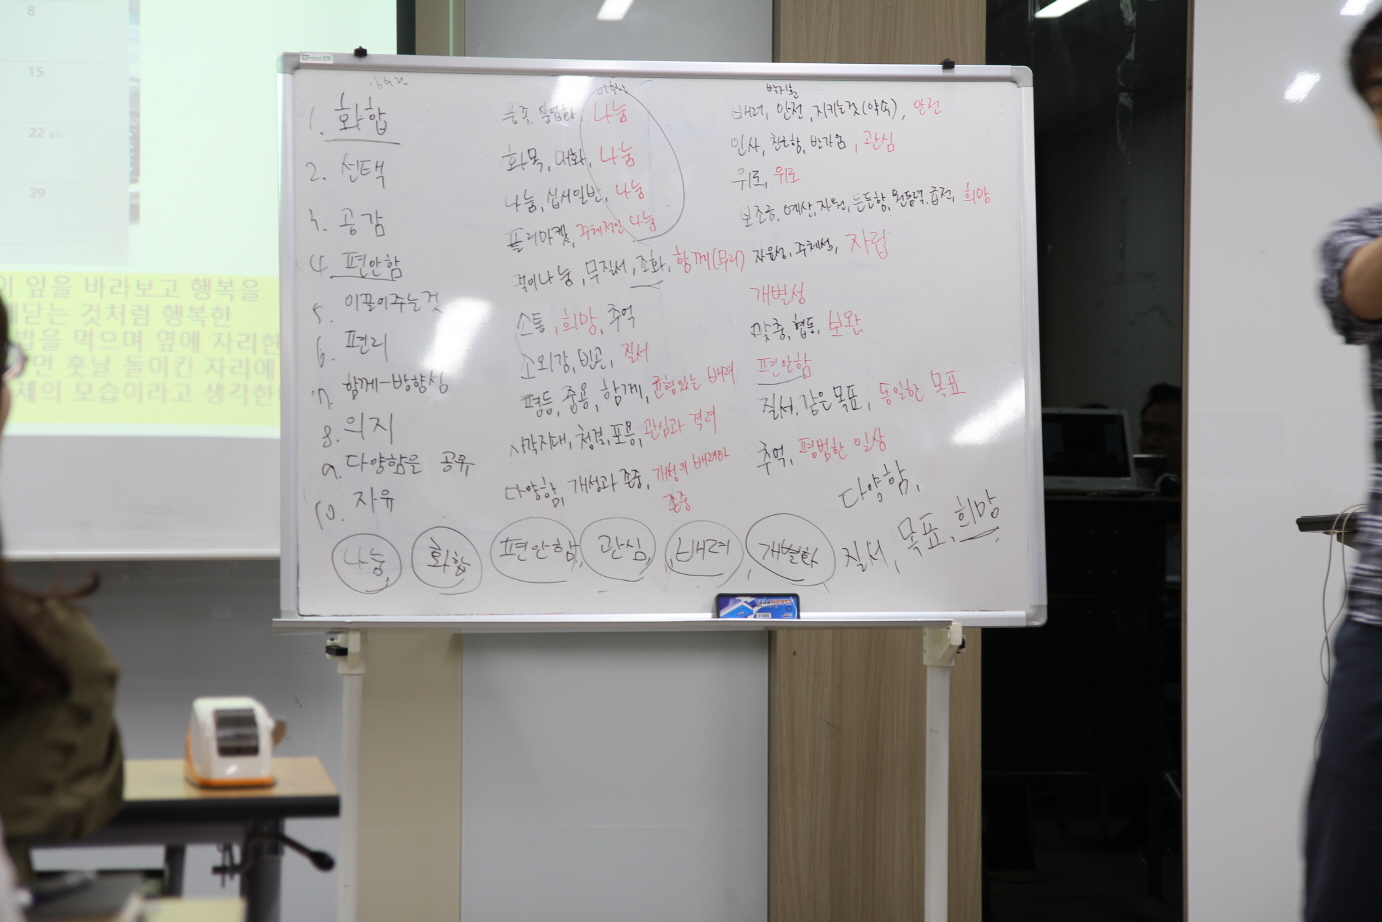 8
15
22
29
이 앞을 바라보고 행복을
깨닫는 것처럼 행복한
밥을 먹으며 옆에 자리한
면 훗날 돌이킨 자리에
제의 모습이라고 생각한
1. 화합
2. 선택
3. 공감
4. 편안함
5. 이끌어주는것
6. 편리
7. 함께-방향성
8. 의지
9. 다양함을 공유
10. 자유
나눔
화목, 대화, 나눔
나눔, 십시일반, 나눔
플리마켓, 주체적인 나눔
먹이나눔, 무질서, 조화, 함께(무리)
소통, 희망, 추억
소외감, 빈곤, 질서
평등, 중용, 함께, 균형있는 배려
사각지대, 청결, 포용, 관심과 격려
다양함, 개성과 존중, 개성의 배려와
존중
배려, 안전, 지키는것(약속), 안전
인사, 친근함, 반가움, 관심
위로, 위로
보조금, 예산, 자원, 든든함, 원동력, 급전, 희망
자율성, 주체성, 자립
개별성
맞춤, 협동, 보완
편안함
질서, 같은목표, 동일한 목표
추억, 평범한 일상
다양함,
나눔, 화합, 편안함, 관심, 배려, 개별화, 질서, 목표, 희망